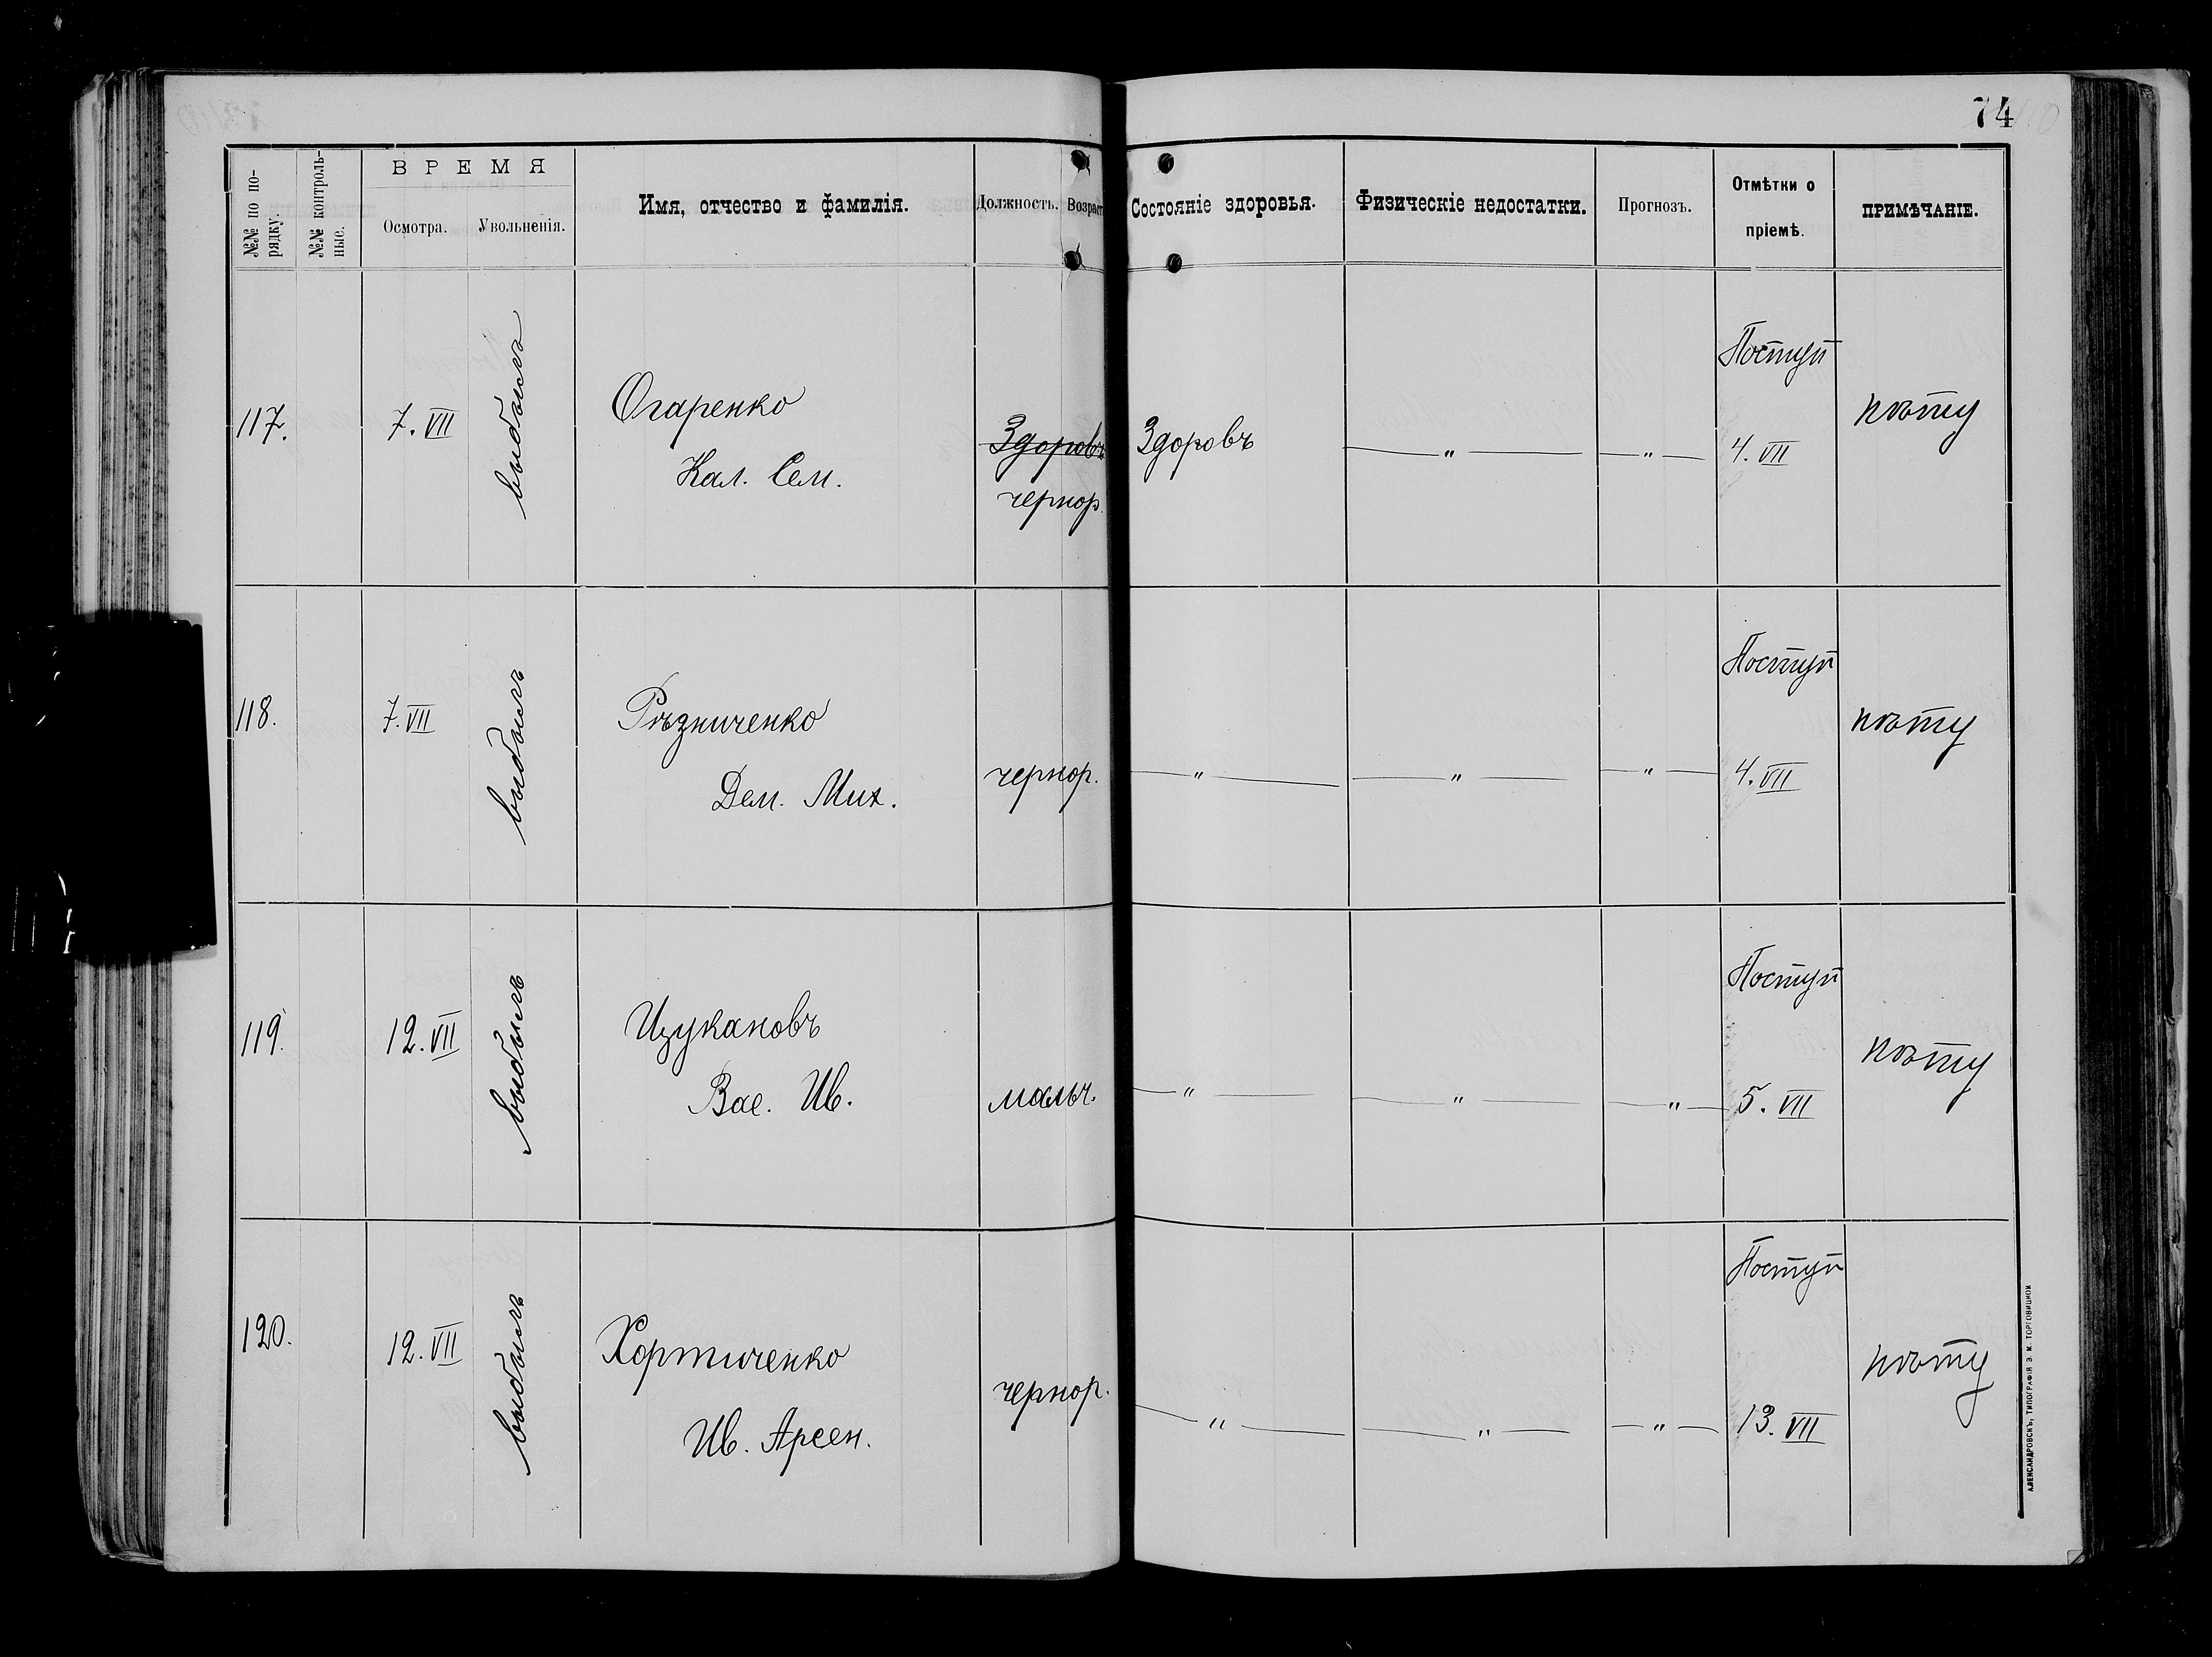 74
№№ по по-
рядку.
№№ контроль-
ные.
ВРЕМЯ
Осмотра.
Увольненія.
Имя, отчество и фамилія.
Должность.
Возраст
Состояніе здоровья.
Физическіе недостатки.
Прогнозъ.
Отмѣтки о
пріемѣ.
ПРИМѢЧАНІЕ.
117.
7. VII
выбылъ
Огаренко
Кал. Сем.
Здоровъ
чернор.
Здоровъ
"
"
Поступ
4. VII
нѣту
118.
7. VII
выбылъ
Рѣзниченко
Дем. Мих.
чернор.
"
"
"
Поступ
4. VII
нѣту
119.
12. VII
выбылъ
Цукановъ
Вас. Ив.
мальч.
"
"
"
Поступ
5. VII
нѣту
120.
12. VII
выбылъ
Хортиченко
Ив. Арсен.
чернор.
"
"
"
Поступ
13. VII
нѣту
АЛЕКСАНДРОВСКЪ, ТИПОГРАФІЯ Э. М. ТОРГОВИЦКОЙ